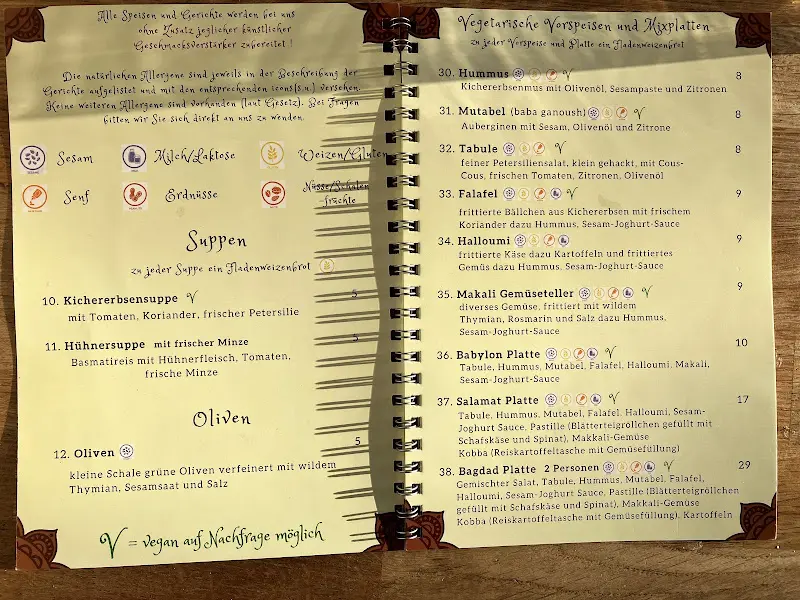 Alle Speisen und Gerichte werden bei uns
ohne Zusatz jeglicher künstlicher
Geschmacksverstärker zubereitet !
Die natürlichen Allergene sind jeweils in der Beschreibung der
Gerichte aufgelistet und mit den entsprechenden icons(s.u.) versehen.
Keine weiteren Allergene sind vorhanden (laut Gesetz). Bei Fragen
bitten wir Sie sich direkt an uns zu wenden.
Sesam Milch/Laktose Weizen/Gluten
Senf Erdnüsse Nüsse/Schalen
früchte
Suppen
zu jeder Suppe ein Fladenweizenbrot
10. Kichererbsensuppe V 5
mit Tomaten, Koriander, frischer Petersilie
11. Hühnersuppe mit frischer Minze 5
Basmatireis mit Hühnerfleisch, Tomaten,
frische Minze
Oliven
12. Oliven 5
kleine Schale grüne Oliven verfeinert mit wildem
Thymian, Sesamsaat und Salz
V = vegan auf Nachfrage möglich
Vegetarische Vorspeisen und Mixplatten
zu jeder Vorspeise und Platte ein Fladenweizenbrot
30. Hummus V 8
Kichererbsenmus mit Olivenöl, Sesampaste und Zitronen
31. Mutabel (baba ganoush) V 8
Auberginen mit Sesam, Olivenöl und Zitrone
32. Tabule V 8
feiner Petersiliensalat, klein gehackt, mit Cous-
Cous, frischen Tomaten, Zitronen, Olivenöl
33. Falafel V 9
frittierte Bällchen aus Kichererbsen mit frischem
Koriander dazu Hummus, Sesam-Joghurt-Sauce
34. Halloumi 9
frittierte Käse dazu Kartoffeln und frittiertes
Gemüs dazu Hummus, Sesam-Joghurt-Sauce
35. Makali Gemüseteller V 9
diverses Gemüse, frittiert mit wildem
Thymian, Rosmarin und Salz dazu Hummus,
Sesam-Joghurt-Sauce
36. Babylon Platte V 10
Tabule, Hummus, Mutabel, Falafel, Halloumi, Makali,
Sesam-Joghurt-Sauce
37. Salamat Platte V 17
Tabule, Hummus, Mutabel, Falafel, Halloumi, Sesam-
Joghurt Sauce, Pastille (Blätterteigröllchen gefüllt mit
Schafskäse und Spinat), Makkali-Gemüse
Kobba (Reiskartoffeltasche mit Gemüsefüllung)
38. Bagdad Platte 2 Personen V 29
Gemischter Salat, Tabule, Hummus, Mutabel, Falafel,
Halloumi, Sesam-Joghurt Sauce, Pastille (Blätterteigröllchen
gefüllt mit Schafskäse und Spinat), Makkali-Gemüse
Kobba (Reiskartoffeltasche mit Gemüsefüllung), Kartoffeln